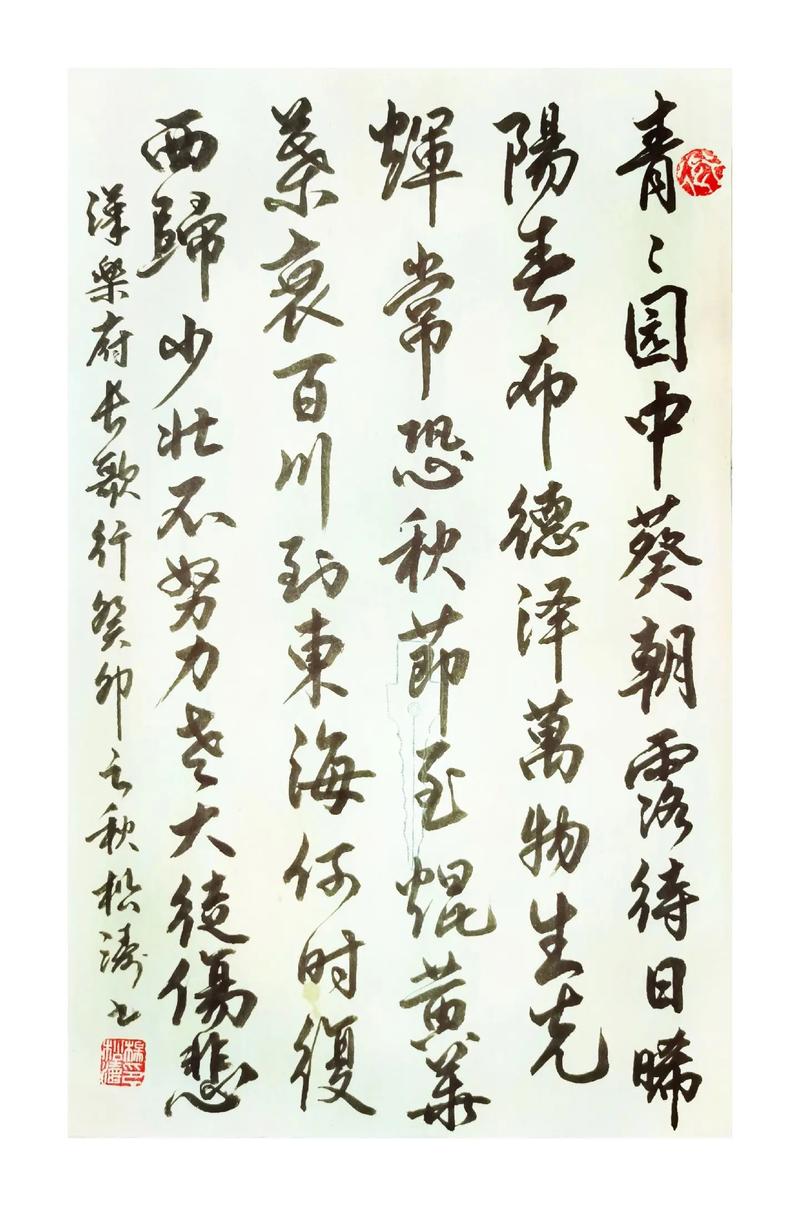 青〻园中葵朝露待日晞
陽春布德泽萬物生光
輝常恐秋節至焜黄華
葉衰百川到東海何时復
西歸少壮不努力老大徒傷悲
漢樂府长歌行癸卯之秋松涛书